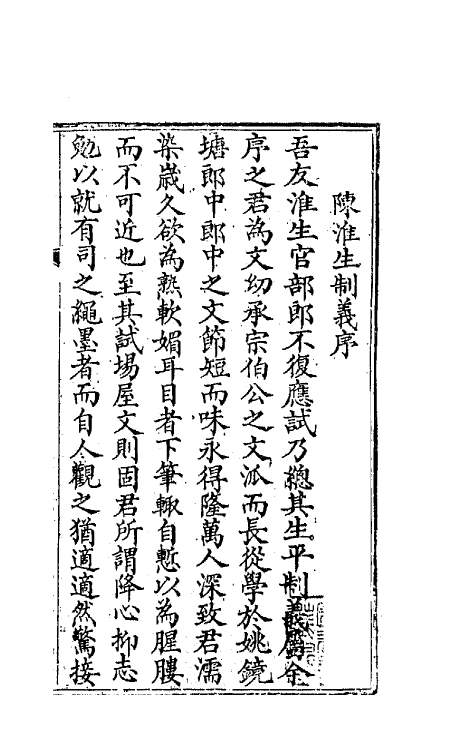 陳淮生制義序
吾友淮生官部郎不復應試乃總其生平制義屬余
序之君為文幼承宗伯公之文派而長從學於姚鏡
塘郎中郎中之文節短而味永得隆萬人深致君濡
染歲久欲為熟軟媚耳目者下筆輒自慙以為腥膻
而不可近也至其試場屋文則固君所謂降心抑志
勉以就有司之繩墨者而自人觀之猶適適然驚接